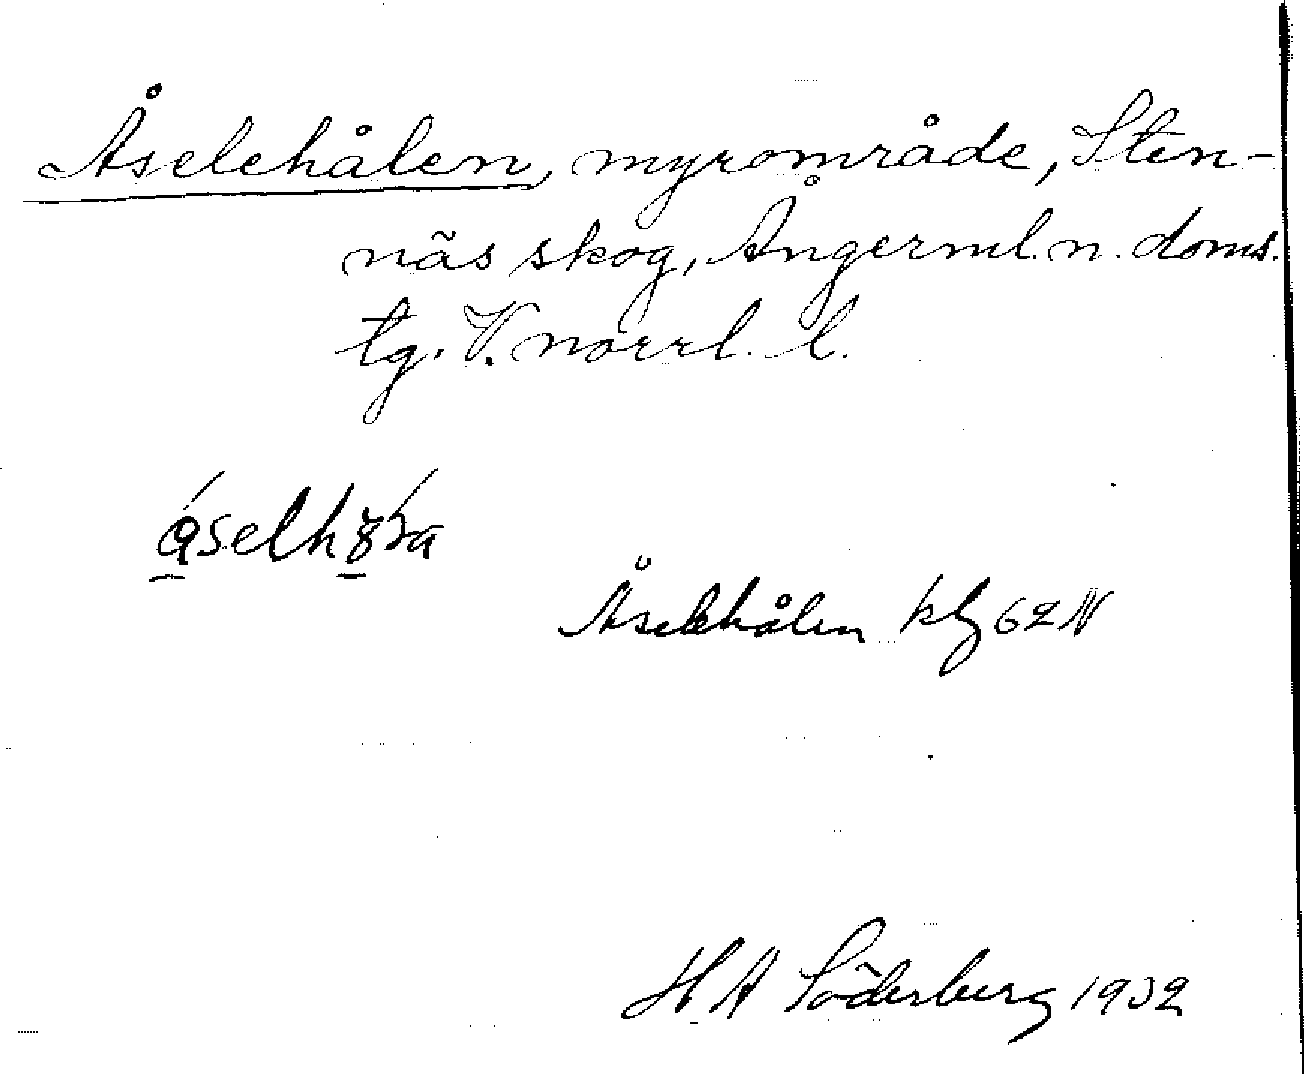 Åselehålen, myrområde, Sten-
näs skog, Ångerml. n. doms.
tg. V. norrl. l.
Åselehålen kbl 62 N
H A Söderberg 1932